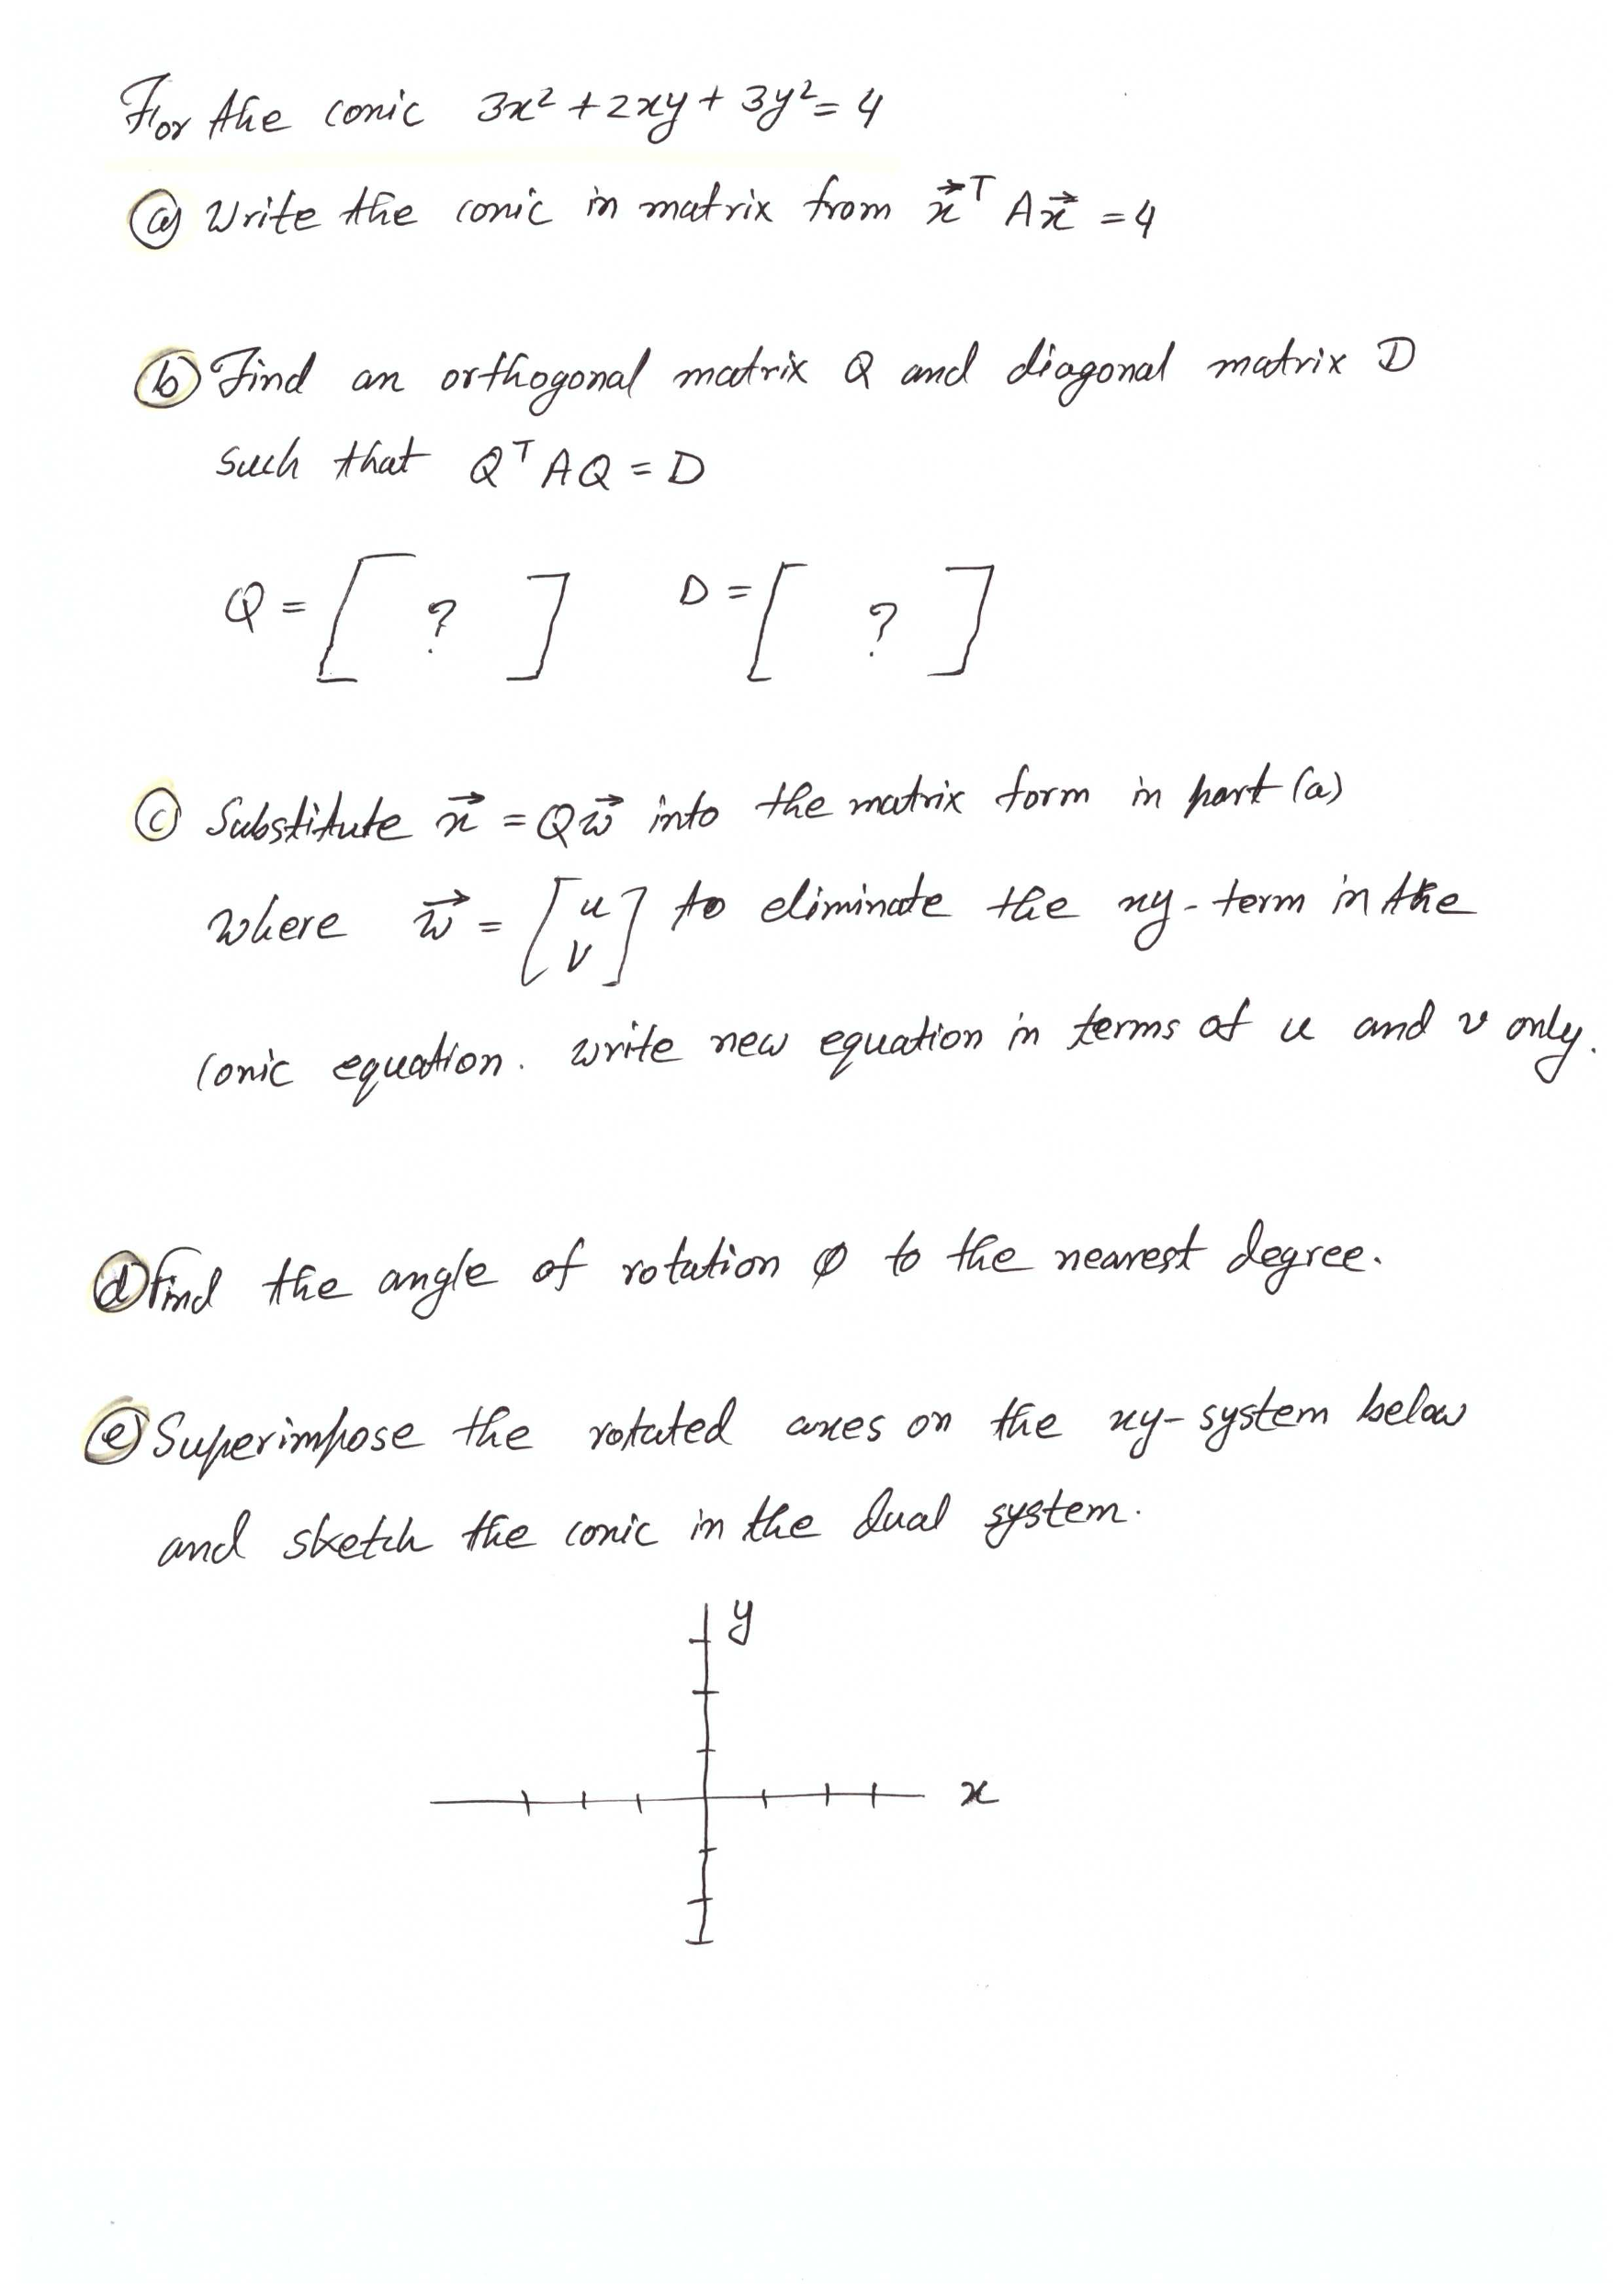 For the conic 3x² + 2xy + 3y² = 4
(a) Write the conic in matrix from x⃗ᵀ A x⃗ = 4
(b) Find an orthogonal matrix Q and diagonal matrix D
such that Qᵀ A Q = D
Q = [ ? ] D = [ ? ]
(c) Substitute x⃗ = Q w⃗ into the matrix form in part (a)
where w⃗ = [u v] to eliminate the xy-term in the
conic equation. write new equation in terms of u and v only.
(d) find the angle of rotation φ to the nearest degree.
(e) Superimpose the rotated axes on the xy-system below
and sketch the conic in the dual system.
y
x